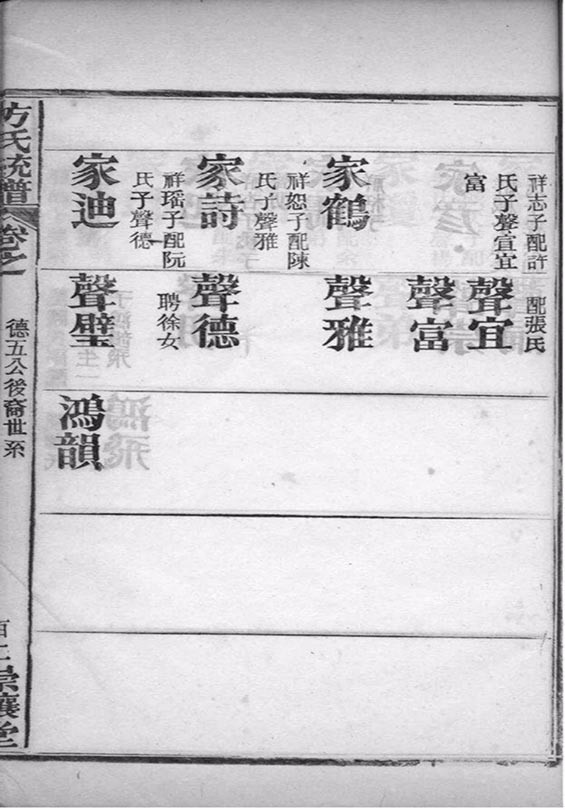 祥志子配許
氏子聲宣宜
富
家鶴
祥恕子配陳
氏子聲雅
家詩
祥瑶子配阮
氏子聲德
家迪
配張氏
聲宜
聲富
聲雅
聲德
聘徐女
聲璧
鴻韻
方氏統譜
卷之一
德五公後裔世系